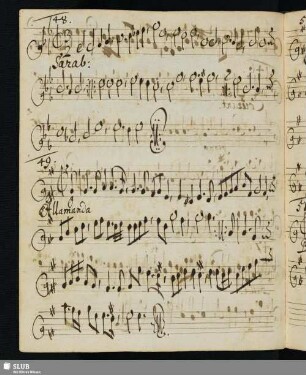 48.
Sarab:
49.
Allamanda
SLUB